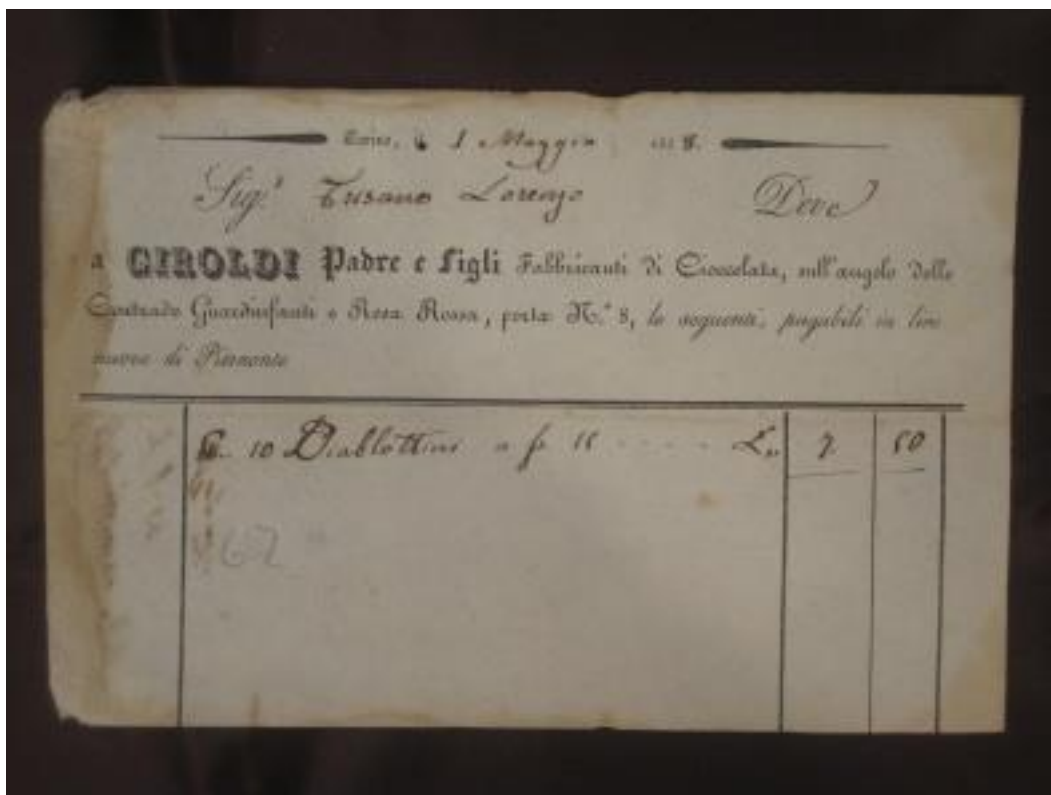 Torino, li 1 Maggio 18 8.
Sig.r Tusano Lorenzo Deve
a GIROLDI Padre e Figli Fabbricanti di Cioccolata, sull'angolo delle
Contrade Guardinfanti e Rosa Rossa, porta N.° 8, le seguenti, pagabili in lire
nuove di Piemonte
10 Diablottini a 7 50
62